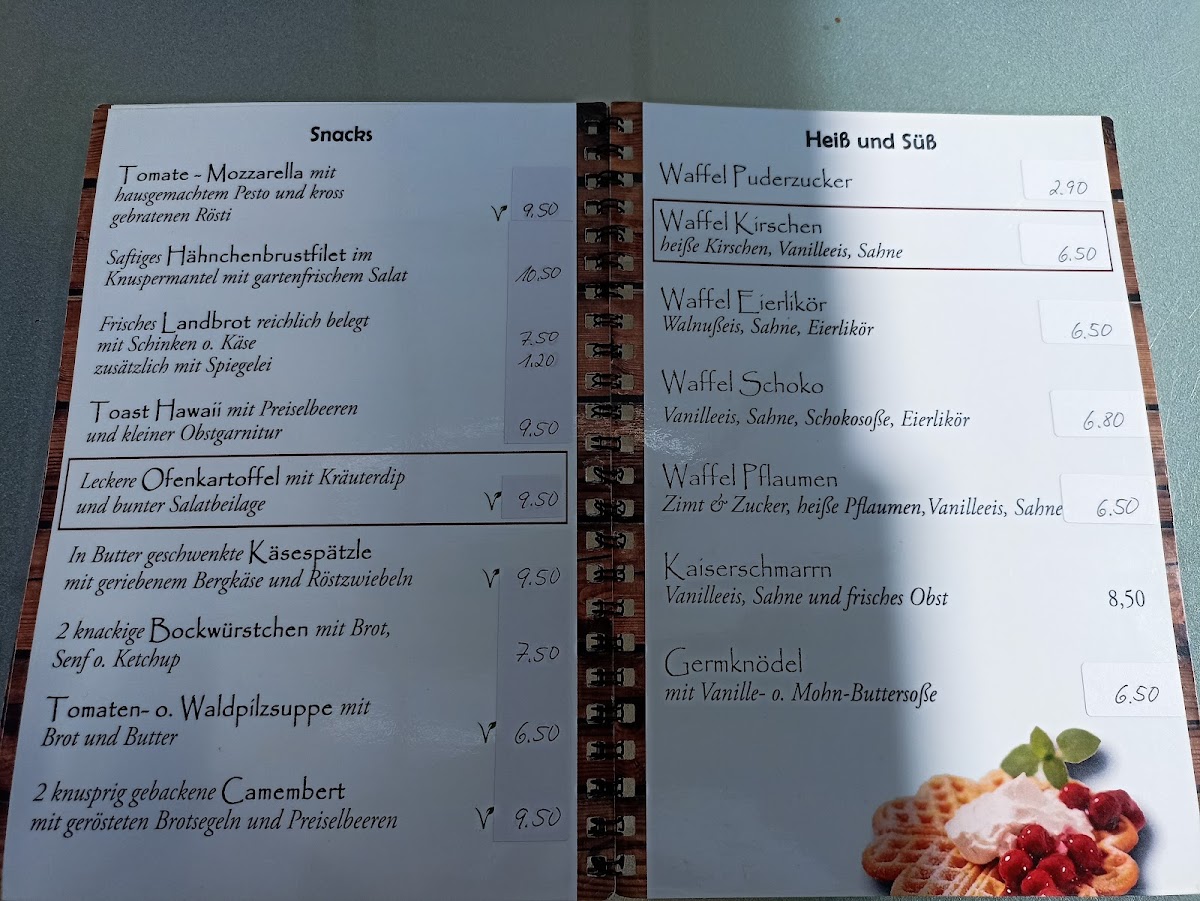 Snacks
Tomate - Mozzarella mit
hausgemachtem Pesto und kross
gebratenen Rösti V 9.50
Saftiges Hähnchenbrustfilet im
Knuspermantel mit gartenfrischem Salat 10,50
Frisches Landbrot reichlich belegt
mit Schinken o. Käse 7.50
zusätzlich mit Spiegelei 1.20
Toast Hawaii mit Preiselbeeren
und kleiner Obstgarnitur 9.50
Leckere Ofenkartoffel mit Kräuterdip
und bunter Salatbeilage V 9.50
In Butter geschwenkte Käsespätzle
mit geriebenem Bergkäse und Röstzwiebeln V 9.50
2 knackige Bockwürstchen mit Brot,
Senf o. Ketchup 7.50
Tomaten- o. Waldpilzsuppe mit
Brot und Butter V 6.50
2 knusprig gebackene Camembert
mit gerösteten Brotsegeln und Preiselbeeren V 9.50
Heiß und Süß
Waffel Puderzucker 2.90
Waffel Kirschen
heiße Kirschen, Vanilleeis, Sahne 6.50
Waffel Eierlikör
Walnußeis, Sahne, Eierlikör 6.50
Waffel Schoko
Vanilleeis, Sahne, Schokosoße, Eierlikör 6.80
Waffel Pflaumen
Zimt & Zucker, heiße Pflaumen, Vanilleeis, Sahne 6.50
Kaiserschmarrn
Vanilleeis, Sahne und frisches Obst 8,50
Germknödel
mit Vanille- o. Mohn-Buttersoße 6.50